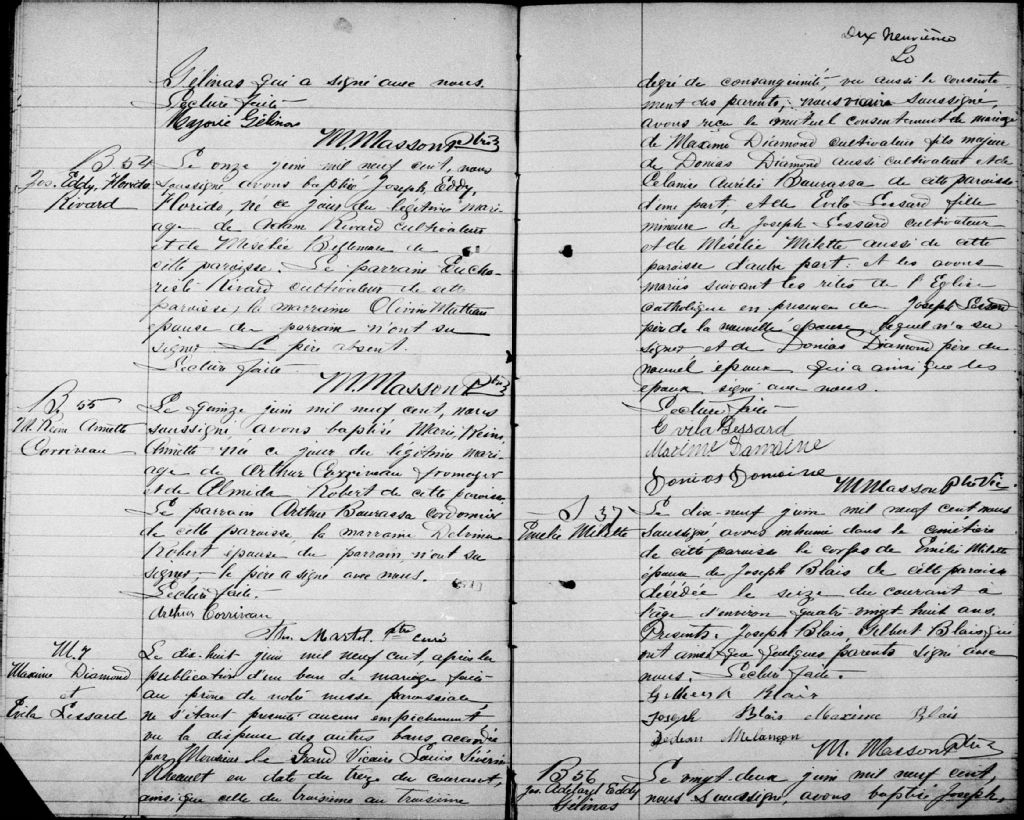 Gélinas qui a signé avec nous.
Lecture faite
Majorie Gélinas
M. Masson Ptre
B 54
Jos. Eddy, Florido
Rivard
Le onze juin mil neuf cent, nous
soussigné avons baptisé Joseph, Eddy,
Florido, né ce jour du légitime mari-
age de Adam Rivard cultivateur
et de Meselie Bellemare de
cette paroisse. Le parrain Eucha-
riste Rivard cultivateur de cette
paroisse, la marraine Olivine Matteau
épouse du parrain n'ont su
signer. Le père absent.
Lecture faite
M. Masson Ptre
B 55
M. Reine Annette
Corriveau
Le quinze juin mil neuf cent, nous
soussigné, avons baptisée Marie, Reine,
Annette née ce jour du légitime mari-
age de Arthur Corriveau fromager
et de Almida Robert de cette paroisse
Le parrain Arthur Bourassa cordonnier
de cette paroisse, la marraine Delvina
Robert épouse du parrain n'ont su
signer, le père a signé avec nous.
Lecture faite.
Arthur Corriveau
Martel ptre curé
M. 7
Maxime Diamond
et
Evila Lessard
Le dix-huit juin mil neuf cent, après la
publication d'un ban de mariage faite
au prône de notre messe paroissiale
ne s'étant présenté aucun empêchement
vu la dispense des autres bans accordée
par Monsieur le Grand Vicaire Louis Sévérin
Rheault en date du treize du courant,
ainsi que celle du troisième au troisième
Dix neuvième
degré de consanguinité, vu aussi le consente-
ment des parents, nous vicaire soussigné,
avons reçu le mutuel consentement de mariage
de Maxime Diamond cultivateur fils majeur
de Donias Diamond aussi cultivateur et de
Celanire Aurélie Bourassa de cette paroisse
d'une part, et de Evila Lessard fille
mineure de Joseph Lessard cultivateur
et de Mésélie Milette aussi de cette
paroisse d'autre part: et les avons
mariés suivant les rites de l'Eglise
catholique en présence de Joseph Lessard
père de la nouvelle épouse, lequel n'a su
signer et de Donias Diamond père du
nouvel époux qui a ainsi que les
époux signé avec nous.
Lecture faite
Evila Lessard
Maxime Damoine
Donias Domoine
M. Masson Ptre Vic.
S 37
Emelie Milette
Le dix-neuf juin mil neuf cent nous
soussigné avons inhumé dans le cimetière
de cette paroisse le corps de Emélie Milette
épouse de Joseph Blais de cette paroisse
décédée le seize du courant à
l'âge d'environ quatre-vingt-huit ans.
Présents: Joseph Blais, Gilbert Blais, qui
ont ainsi que quelques parents signé avec
nous. Lecture faite.
Gilbert Blais
Joseph Blais Maxime Blais
Melançon
M. Masson Ptre
B 56
Jos. Adélard Eddy
Gélinas
Le vingt-deux juin mil neuf cent,
nous soussigné, avons baptisé Joseph,